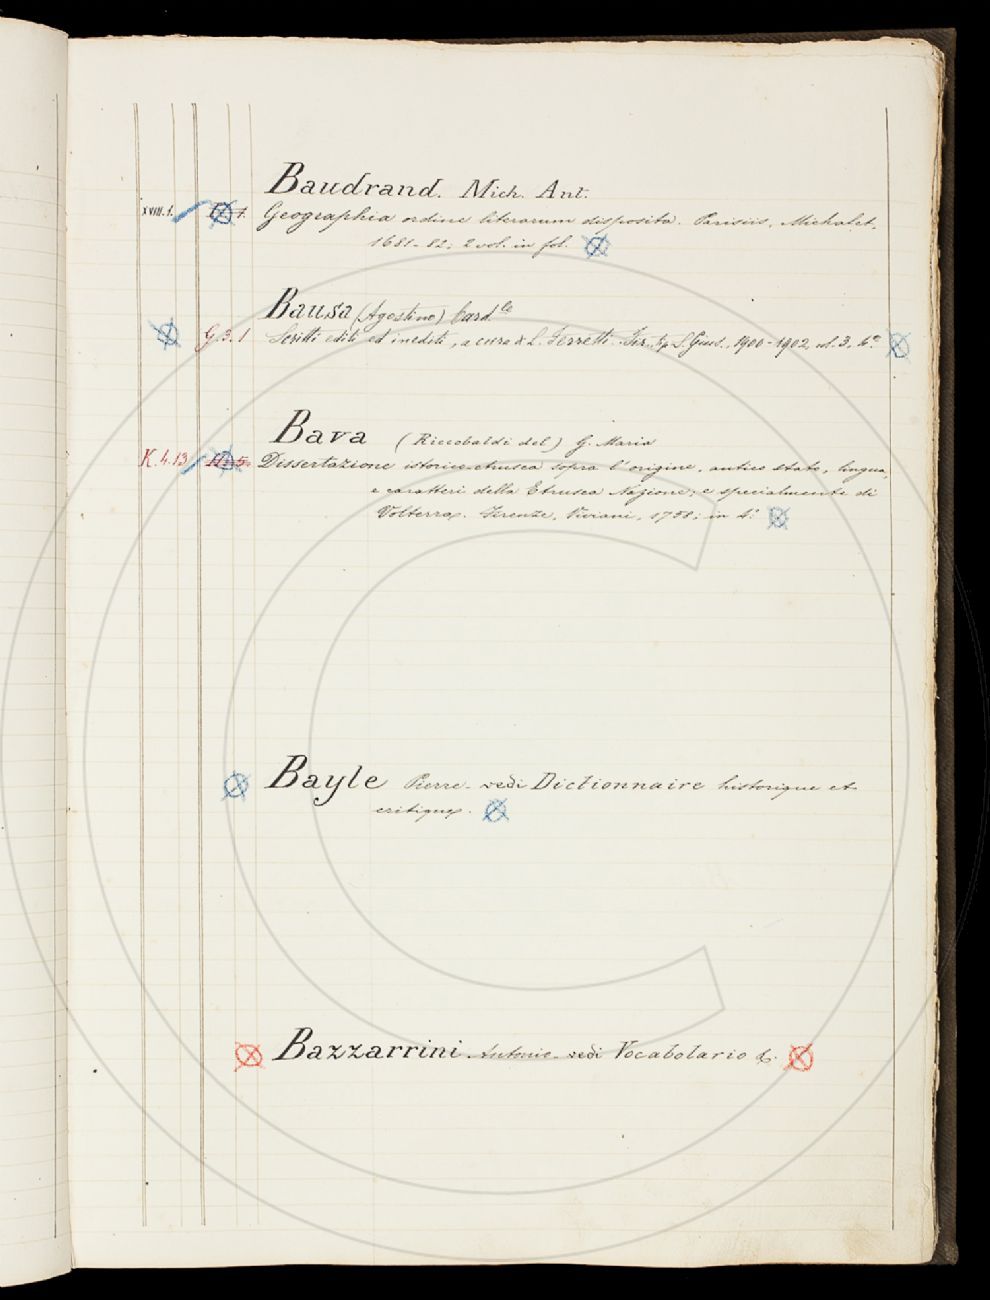 Baudrand. Mich. Ant.
XVIII. 1. Geographia ordine literarum disposita. Parisiis, Michalet,
1681-82; 2 vol. in fol.
Bausa (Agostino) Card.le
G.3.1 Scritti editi ed inediti, a cura di L. Ferretti. Fir. tip. S. Gius., 1900-1902, vol. 3, 4°.
Bava (Riccobaldi del) G. Maria
K.4.13 Dissertazione istorico-etrusca sopra l'origine, antico stato, lingua,
e caratteri della Etrusca Nazione; e specialmente di
Volterra. Firenze, Viviani, 1758; in 4.°
Bayle Pierre - vedi Dictionnaire historique et
critique.
Bazzarrini Antonio - vedi Vocabolario &.